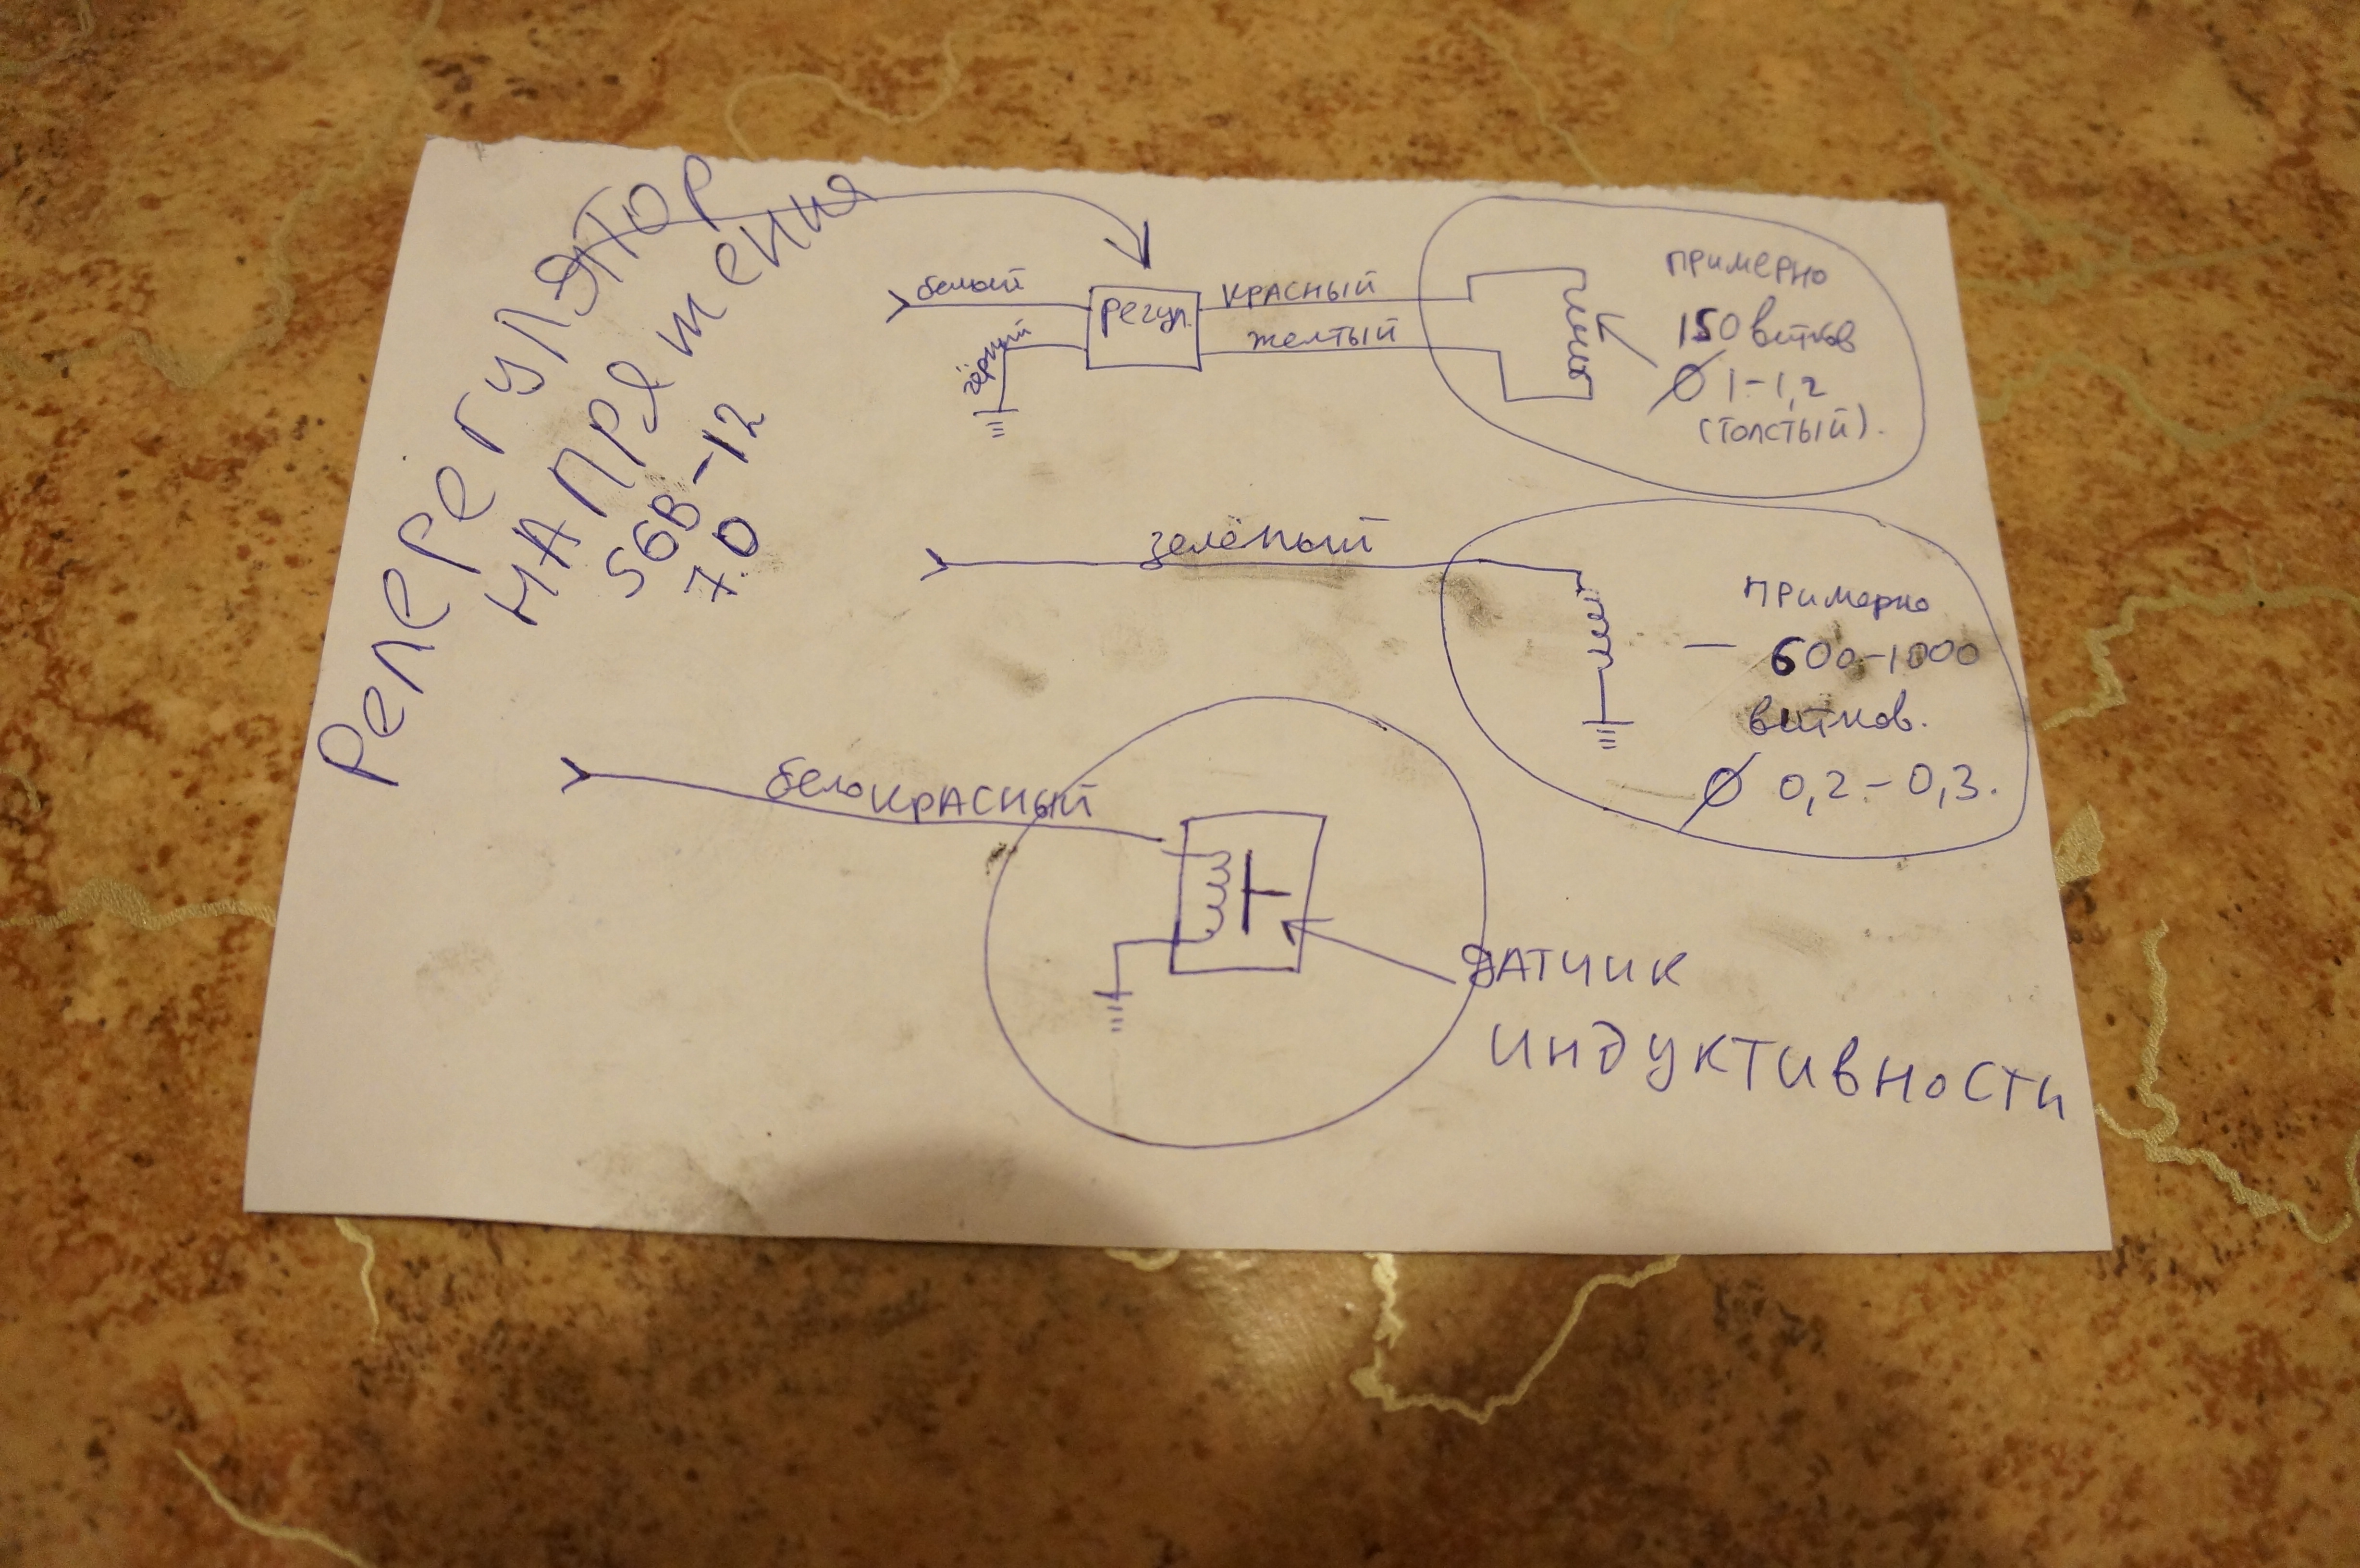 Релерегулятор
напряжения
S6B-12
7.0
белый
чёрный
регул.
красный
желтый
примерно
150 витков
Ø 1-1,2
(толстый).
зелёный
примерно
— 600-1000
витков.
Ø 0,2-0,3.
белокрасный
датчик
индуктивности